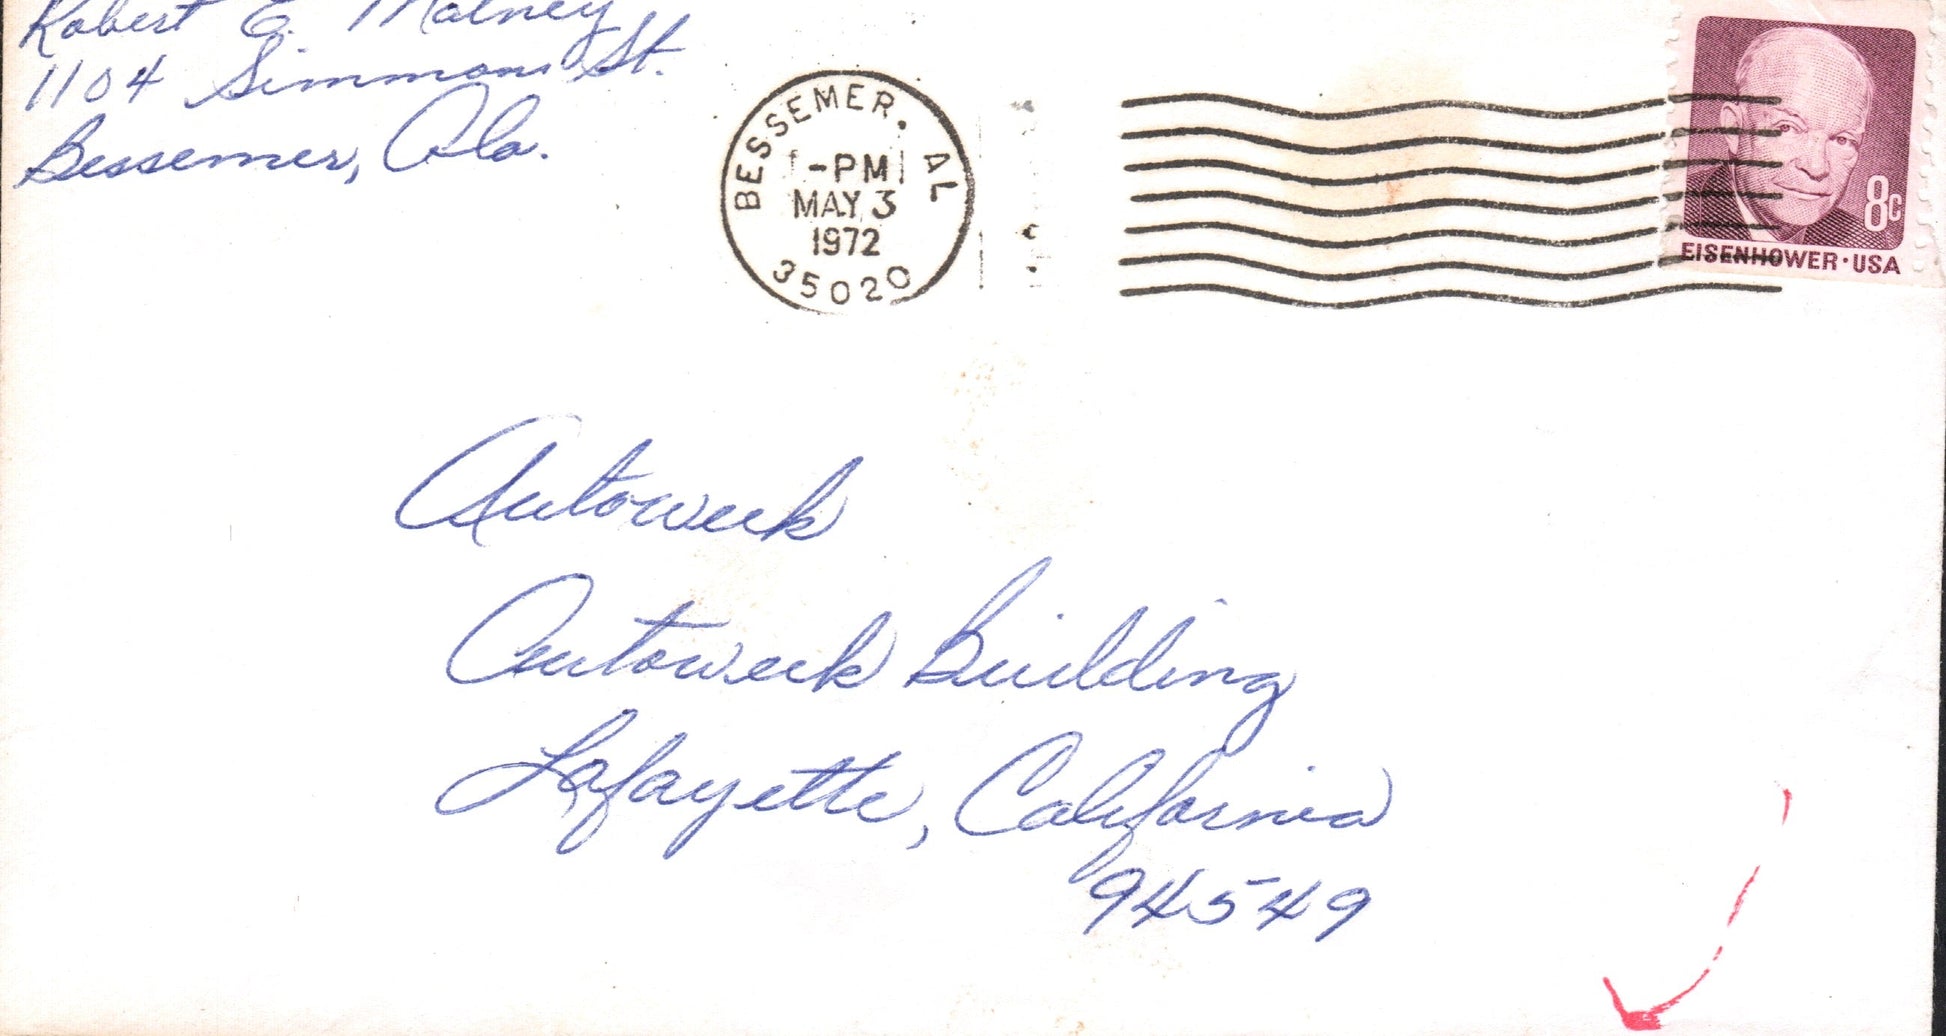 Robert E. Matney
1104 Simmons St.
Bessemer, Ala.
BESSEMER, AL
-PM
MAY 3
1972
35020
8c
EISENHOWER · USA
Autoweek
Autoweek Building
Lafayette, California
94549